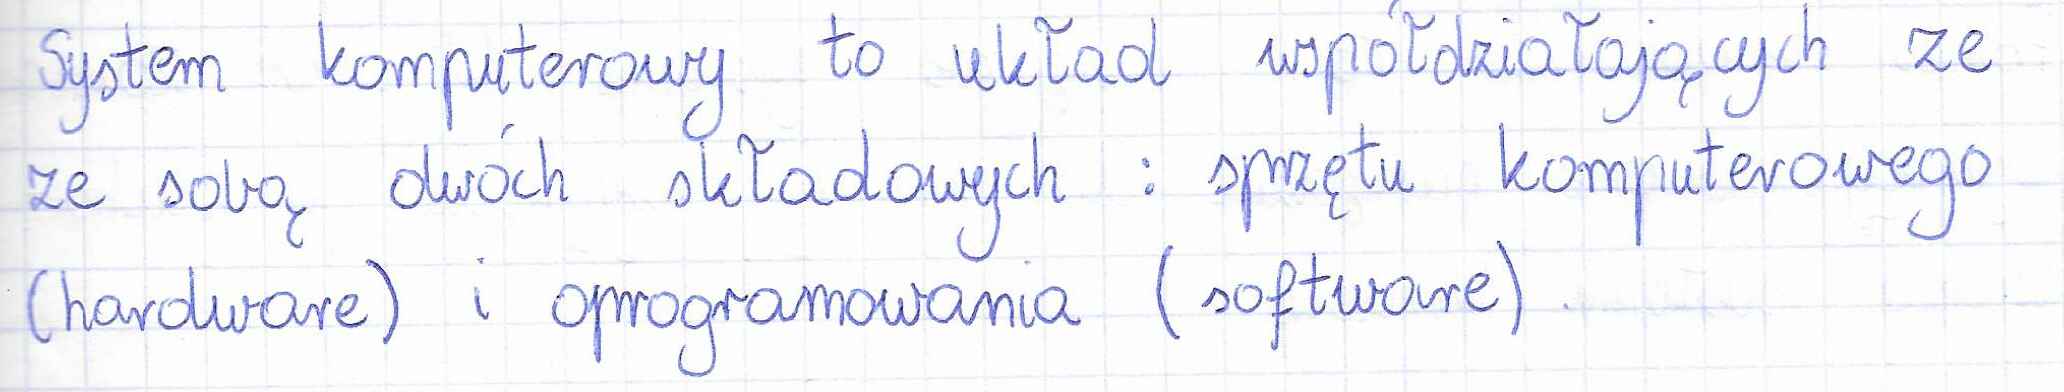 System komputerowy to układ współdziałających ze
ze sobą dwóch składowych : sprzętu komputerowego
(hardware) i oprogramowania (software).